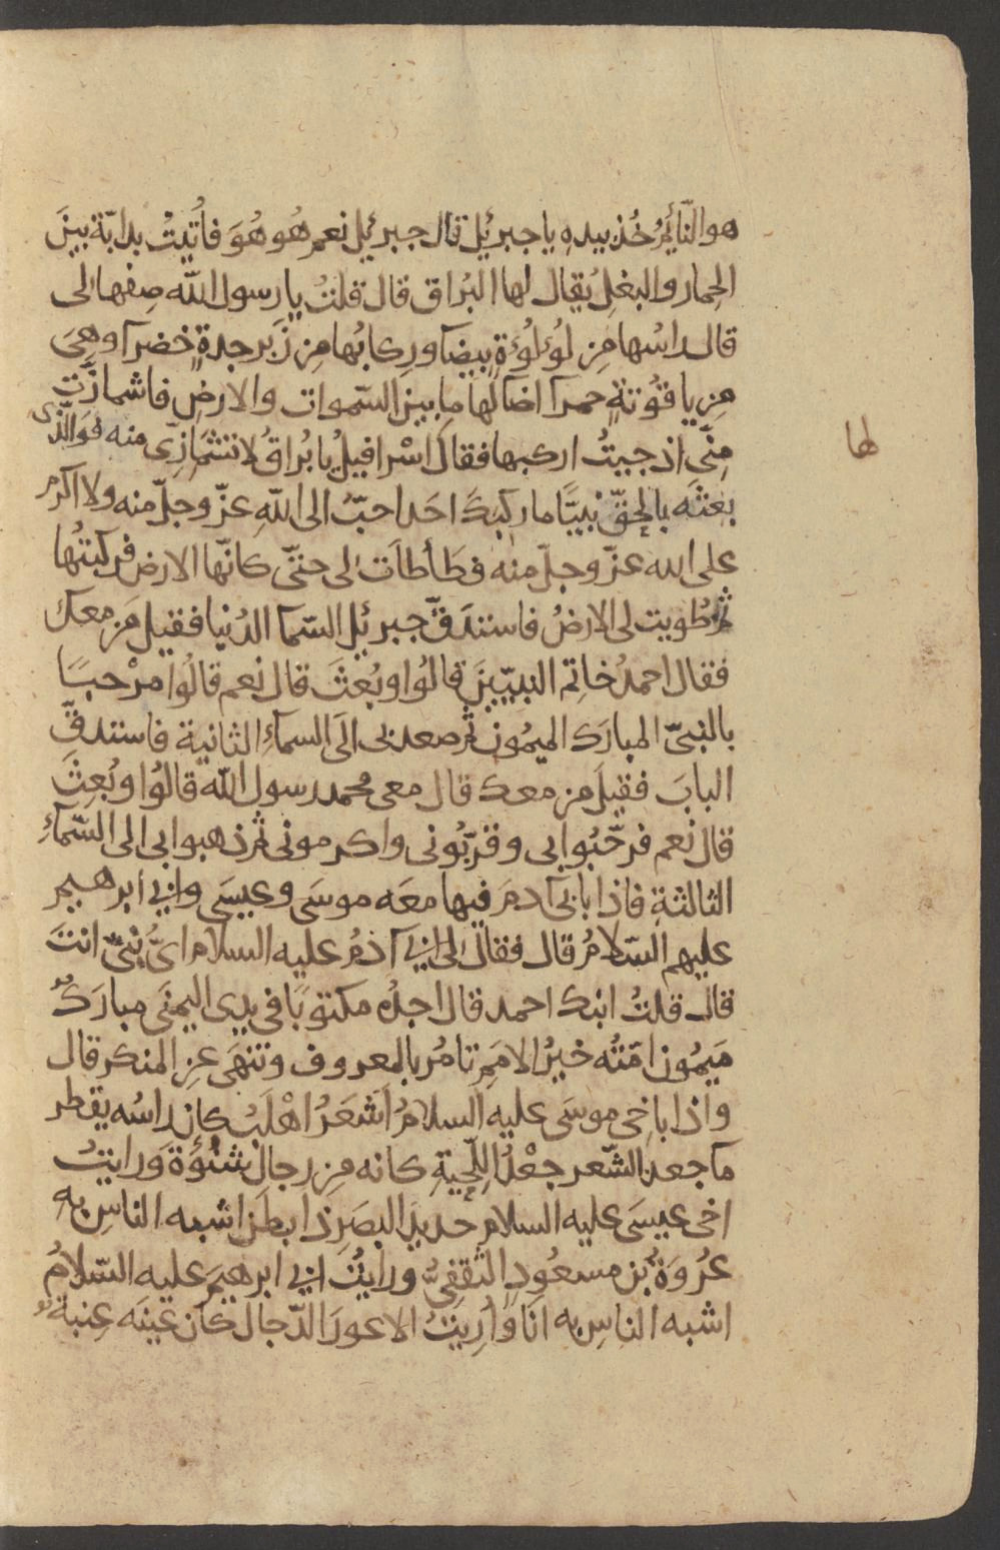 هو النّائمُ خُذ بيدهِ يا جبرئيل قال جبرئيل نعم هُو هُوَ فأُتيتُ بدابّة بينَ
الحِمارِ والبغلِ يُقال لها البُراق قال قلتُ يا رسول اللّه صِفها لى
قال راسُها مِن لُؤلُؤةٍ بيضآ ورِكابُها مِن زَبَرجدةٍ خضرآ وهِىَ
مِن ياقُوتةٍ حمرآ اضآ لها ما بين السّموات والارضِ فاشمازّت
مِنّى اذ جيتُ اركبها فقال اسْرافيلُ يا بُراقُ لا تشمَازِّى منه فوالّذى
بعثَه بالحقّ نبيّاً ما ركبكَ احَد احبّ الى اللّهِ عزّ وجلّ منه ولا اكرم
على الله عزّ وجلّ منه فطَأطاَت لى حتّى كانّها الارض فركبتُها
ثم طُويت لى الارضُ فاستدَقَّ جبرئيل السّمآ الدُنيا فقيل مَن معك
فقال احمدُ خاتِم النبيّينَ قالُوا وبُعثَ قال نعم قالُوا مرْحبًا
بالنبىّ المبارَك الميمُون ثم صعد بى الَى السمآءِ الثانية فاستدقَّ
البابَ فقيلَ من معك قال معى محمد رسول اللّه قالُوا وبُعِثَ
قال نعم فرحّبُوا بى وقرّبُونى واكرمونى ثم ذهبوا بى الى السّمآءِ
الثالثةِ فاذا بابى آدمَ فيها معَه موسَى وعيسَى وابى ابرهيم
عليهم السّلامُ قال فقال لى ابى آدمُ عليه السلام اىُّ نبىّ انتَ
قال قلتُ ابنك احمد قال اجدُه مكتوبًا فى يدى اليمنَى مبارَكٌ
مَيمُون امّتُه خيرُ الامَمِ تامُر بالمعروف وتنهَى عنِ المنكر قال
واذا باخى موسَى عليه السلامُ اَشعَرُ اهْلَبُ كان راسُه يقطر
مآ جعد الشّعر جعْدُ اللّحيةِ كانه مِن رجال شنُؤةَ ورايتُ
اخى عيسَى عليه السلام حديد البصَرِ ذا بطَن اشبه الناسِ بهِ
عُروَةُ بن مسعُودٍ الثّقفِىُّ ورايتُ ابى ابرهيمَ عليه السّلامُ
اشبه الناسِ به انَا وأُرِيتُ الاعورَ الدّجال كان عَينَه عِنبةٌ
لها